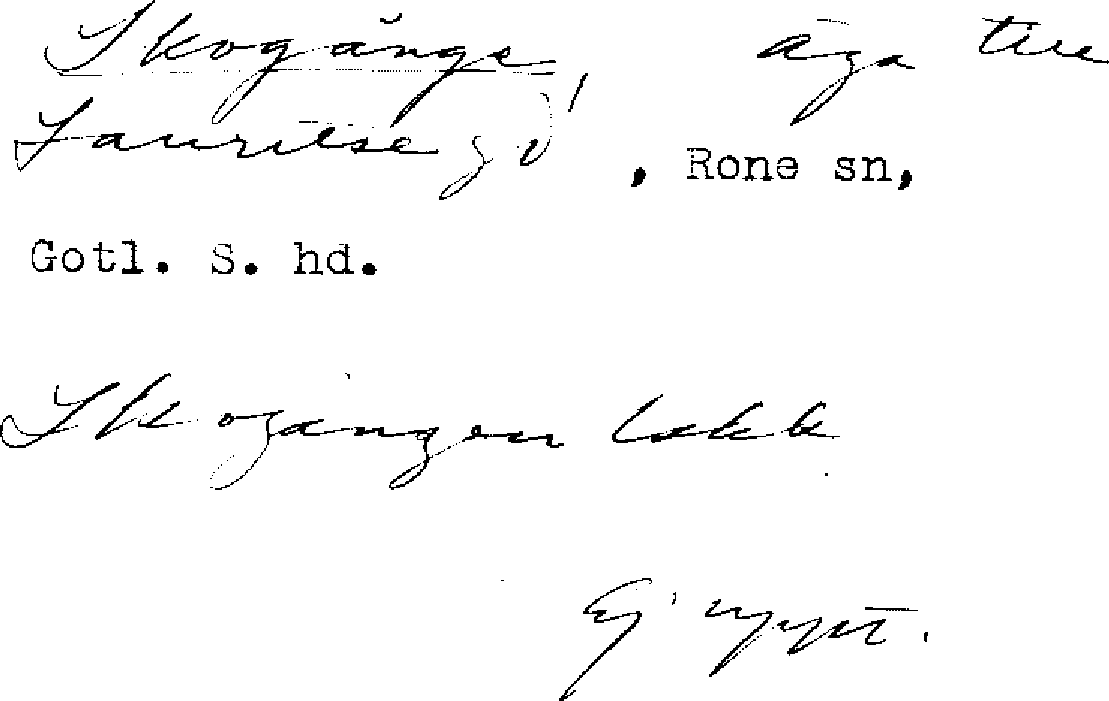 Skogänge, äga till
Laurilse gd, Rone sn,
Gotl. S. hd.
Skogängen lakk
Ej uppt.